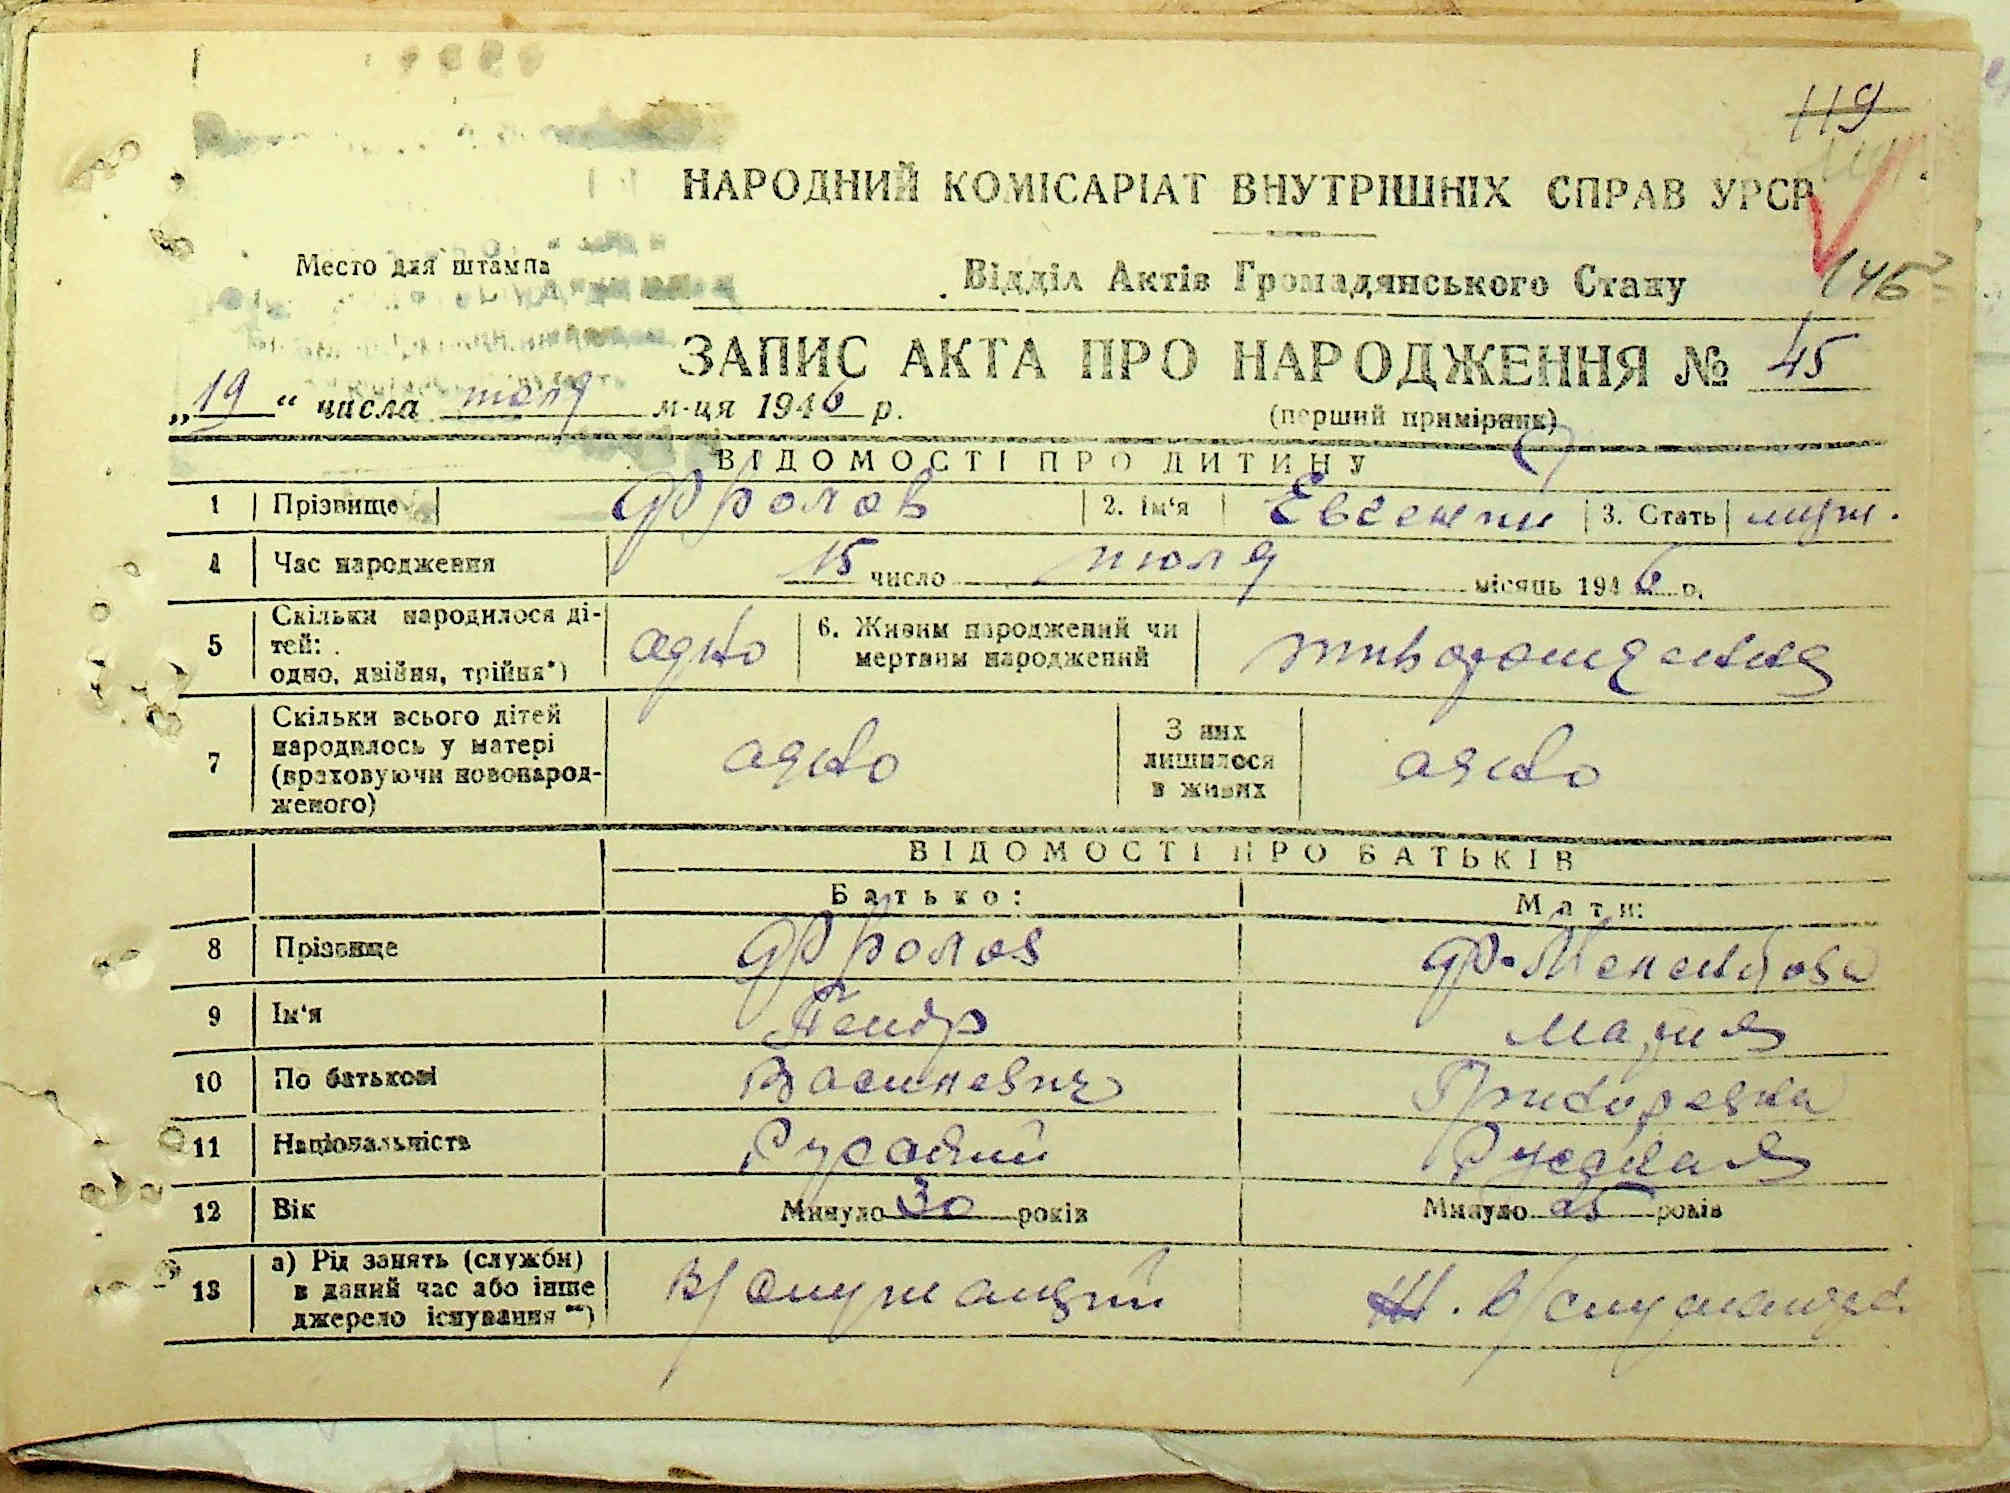 119
НАРОДНИЙ КОМІСАРІАТ ВНУТРІШНІХ СПРАВ УРСР
Место для штампа
Відділ Актів Громадянського Стану
146
ЗАПИС АКТА ПРО НАРОДЖЕННЯ № 45
„19“ числа июля м-ця 1946 р.
(перший примірник)
ВІДОМОСТІ ПРО ДИТИНУ
1 Прізвище Фролов 2. Ім'я Евгений 3. Стать муж.
4 Час народження 15 число июля місяць 1946 р.
5 Скільки народилося ді-
тей:
одно, двійня, трійня*) одно
6. Живим народжений чи
мертвим народжений
7 Скільки всього дітей
народилось у матері
(враховуючи новонарод-
женого) одно
З них
лишилося
в живих одно
ВІДОМОСТІ ПРО БАТЬКІВ
Батько: Мати:
8 Прізвище Фролов
9 Ім'я Петр Мария
10 По батькові Васильевич Григорьевна
11 Національність Русский Русская
12 Вік Минуло 30 років Минуло 25 років
13 а) Рід занять (служби)
в даний час або інше
джерело існування **) В/служащий Ж. в/служащего